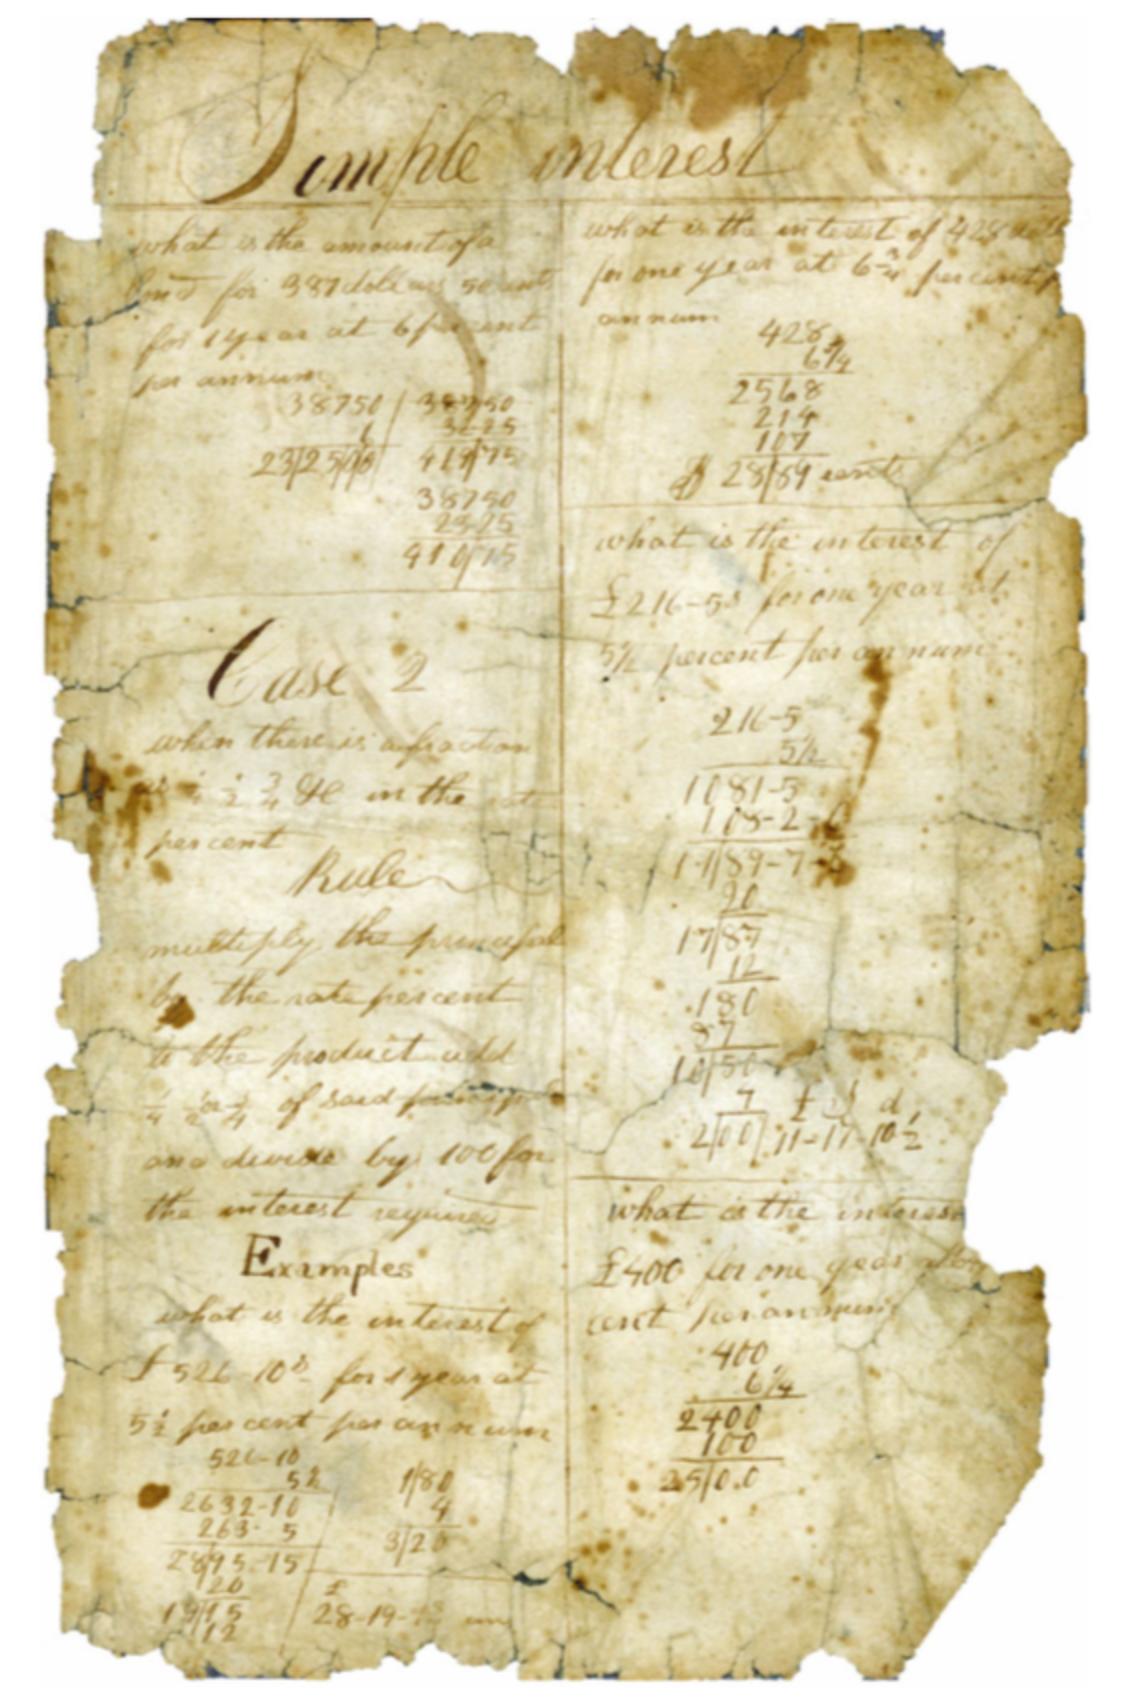 Simple interest
what is the amount of a
bond for 387 dollars 50 cents
for 1 year at 6 per cent
per annum
38750 | 38750
6 2325
23|25|00 410|75
38750
23-25
410|75
Case 2
when there is a fraction
as 1/4 1/2 3/4 &c in the
per cent
Rule
multiply the principal
by the rate per cent
to the product add
1/4 1/2 or 3/4 of said
and divide by 100 for
the interest required
Examples
what is the interest of
£ 526-10s for 1 year at
5 1/2 per cent per annum
526-10
5 1/2
2632-10
263-5
28|95-15
20
19|15
12
1|80
4
3|20
£
28-19-
what is the interest of 428
for one year at 6 3/4 per cent
annum
428
6 3/4
2568
214
107
$ 28|89 cents
what is the interest of
£216-5s for one year at
5 1/2 percent per annum
216-5
5 1/2
1081-5
108-2-6
11|89-7-
20
17|87
12
180
87
10|50
£ s d
2|00| 11-17-10 1/2
what is the interest
£400 for one year
cent per annum
400
6 1/4
2400
100
25|0.0